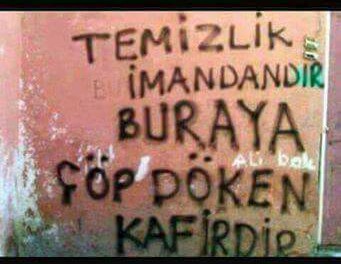 TEMİZLİK
İMANDANDIR
BURAYA
Ali bok
ÇÖP DÖKEN
KAFİRDİR